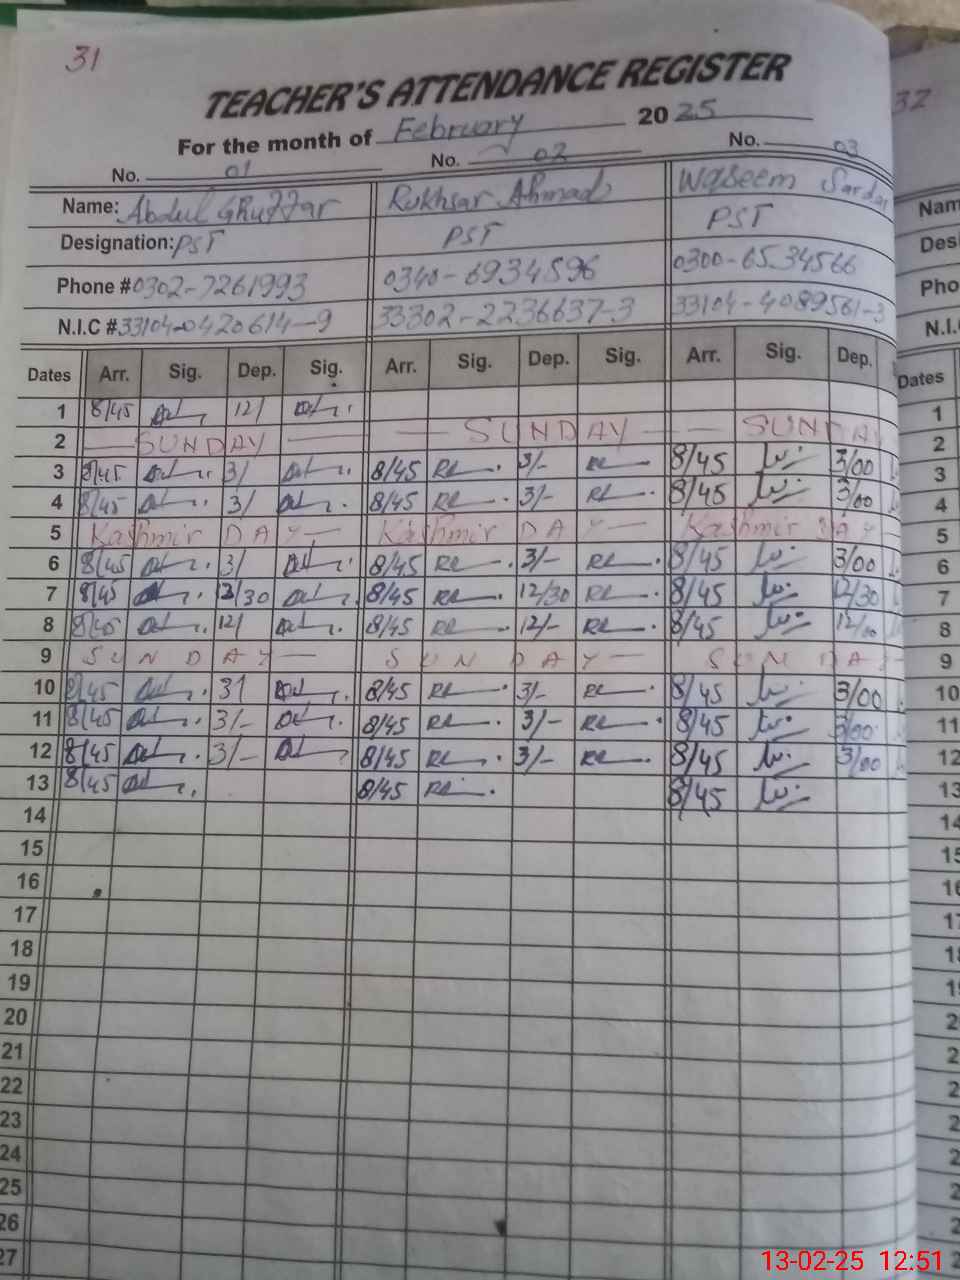 31
TEACHER'S ATTENDANCE REGISTER
For the month of February 2025
No. 01 No. 02 No. 03
Name: Abdul Ghuffar Rukhsar Ahmad Waseem Sardar
Designation: PST PST PST
Phone # 0302-7261993 0340-6934596 0300-6534566
N.I.C # 33104-0420614-9 33302-2236637-3 33104-4089561-3
Dates Arr. Sig. Dep. Sig. Arr. Sig. Dep. Sig. Arr. Sig. Dep.
1 8/45 12/
2 SUNDAY SUNDAY SUNDAY
3 8/45 3/ 8/45 3/- 8/45 3/00
4 8/45 3/ 8/45 3/- 8/45 3/00
5 Kashmir DAY Kashmir DAY Kashmir DAY
6 8/45 3/ 8/45 3/- 8/45 3/00
7 8/45 12/30 8/45 12/30 8/45 12/30
8 8/45 12/ 8/45 12/- 8/45 12/00
9 SUNDAY SUNDAY SUNDAY
10 8/45 3/ 8/45 3/- 8/45 3/00
11 8/45 3/- 8/45 3/- 8/45 3/00
12 8/45 3/- 8/45 3/- 8/45 3/00
13 8/45 8/45 8/45
14
15
16
17
18
19
20
21
22
23
24
25
26
27
32
Dates
1
2
3
4
5
6
7
8
9
10
11
12
13
14
13-02-25 12:51